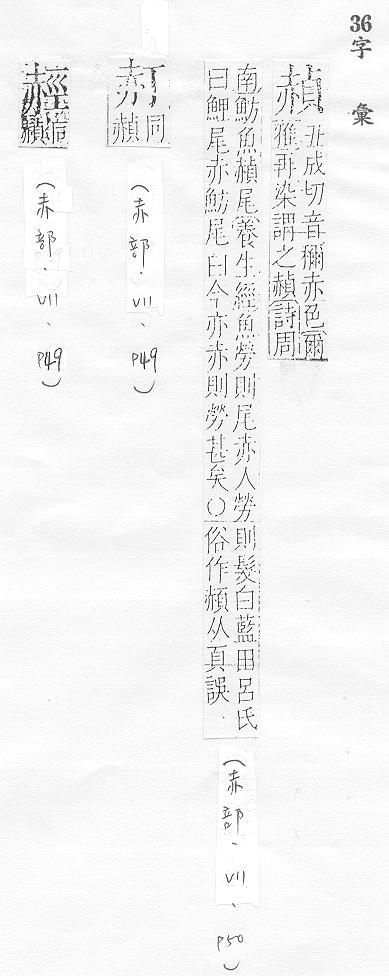 36字彙
赬
丑成切音稱赤色爾
雅再染謂之赬詩周
南魴魚赬尾養生經魚勞則尾赤人勞則髮白藍田呂氏
曰鯉尾赤魴尾白今亦赤則勞甚矣〇俗作頳从頁誤
(赤部.VII、P50)
同
赬
(赤部.VII、P49)
䞓
同
赬
(赤部.VII、P49)